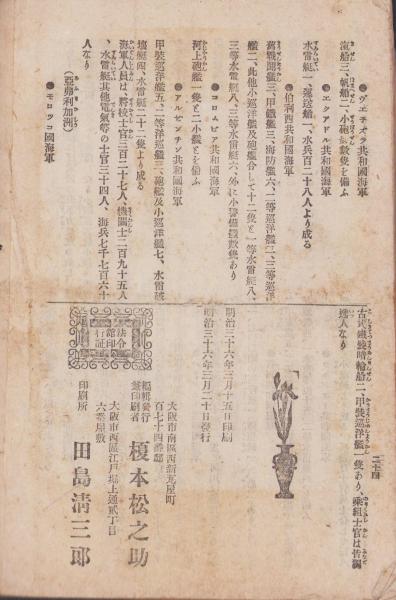 ●ヴエネズラ共和國海軍
滊船三、帆船二、小砲艦數隻を備ふ
●エクアドル共和國海軍
水雷艇一、運送船一、水兵百二十八人より成る
●伯剌西共和國海軍
舊戰鬪艦三、甲鐵艦三、海防艦六、二等巡洋艦一、三等巡洋
艦二、此他小巡洋艦及砲艦合して十二隻と一等水雷艇八、
三等水雷艇八、三等水雷艇六、外に小警備艦數隻あり
●コロムビア共和國海軍
河上砲艦一隻と二小艦とを備ふ
●アルゼンチン共和國海軍
甲裝巡洋艦五、二等巡洋艦三、砲艦及小巡洋艦七、水雷破
壞艇四、水雷艇二十二隻より成る
海軍人員は、將校士官三百二十七人、機關士二百九十五人
、水雷艇其他電氣等の士官三十四人、海兵七千七百六十
人なり
(亞弗利加洲)
●モロツコ國海軍
二十四
古武鐵製暗輪船二、甲裝巡洋艦一隻あり、乘組士官は皆獨
逸人なり
明治三十六年三月十五日印刷
明治三十六年三月二十日發行
大阪市南區西新瓦屋町
百七十四番邸
編輯發行
兼印刷者
榎本松之助
大阪市西區江戸堀上通貳丁目
六番屋敷
印刷所
田島清三郎
法令
館印
行証